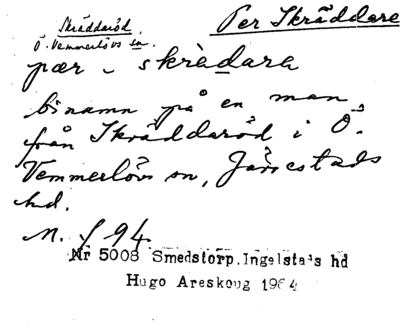 Skräddaröd.
Per Skräddare
Ö. Vemmerlövs sn.
pær - skrädara
binamn på en man
från Skräddaröd i Ö.
Vemmerlövs sn, Järrestads
hd.
M. f 94.
Nr 5008 Smedstorp, Ingelstads hd
Hugo Areskoug 1964